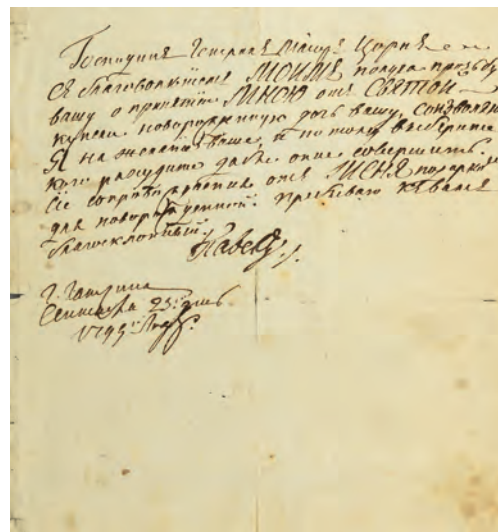 Господинъ Генералъ Маіоръ
благоволеніемъ МОИМЪ получа прозьбу
вашу о принятіи МНОЮ отъ СВЯТОЙ
купели новорожденную дочь вашу, соизволяю
Я на желаніе ваше, и потому выберите
кого разсудите дабы оное совершить.
Сіе отъ МЕНЯ
для новорожденной. пребываю къ вамъ
благосклонный.
Павелъ.
Г. Гатчина
Сентября 23: дня
1795: года.